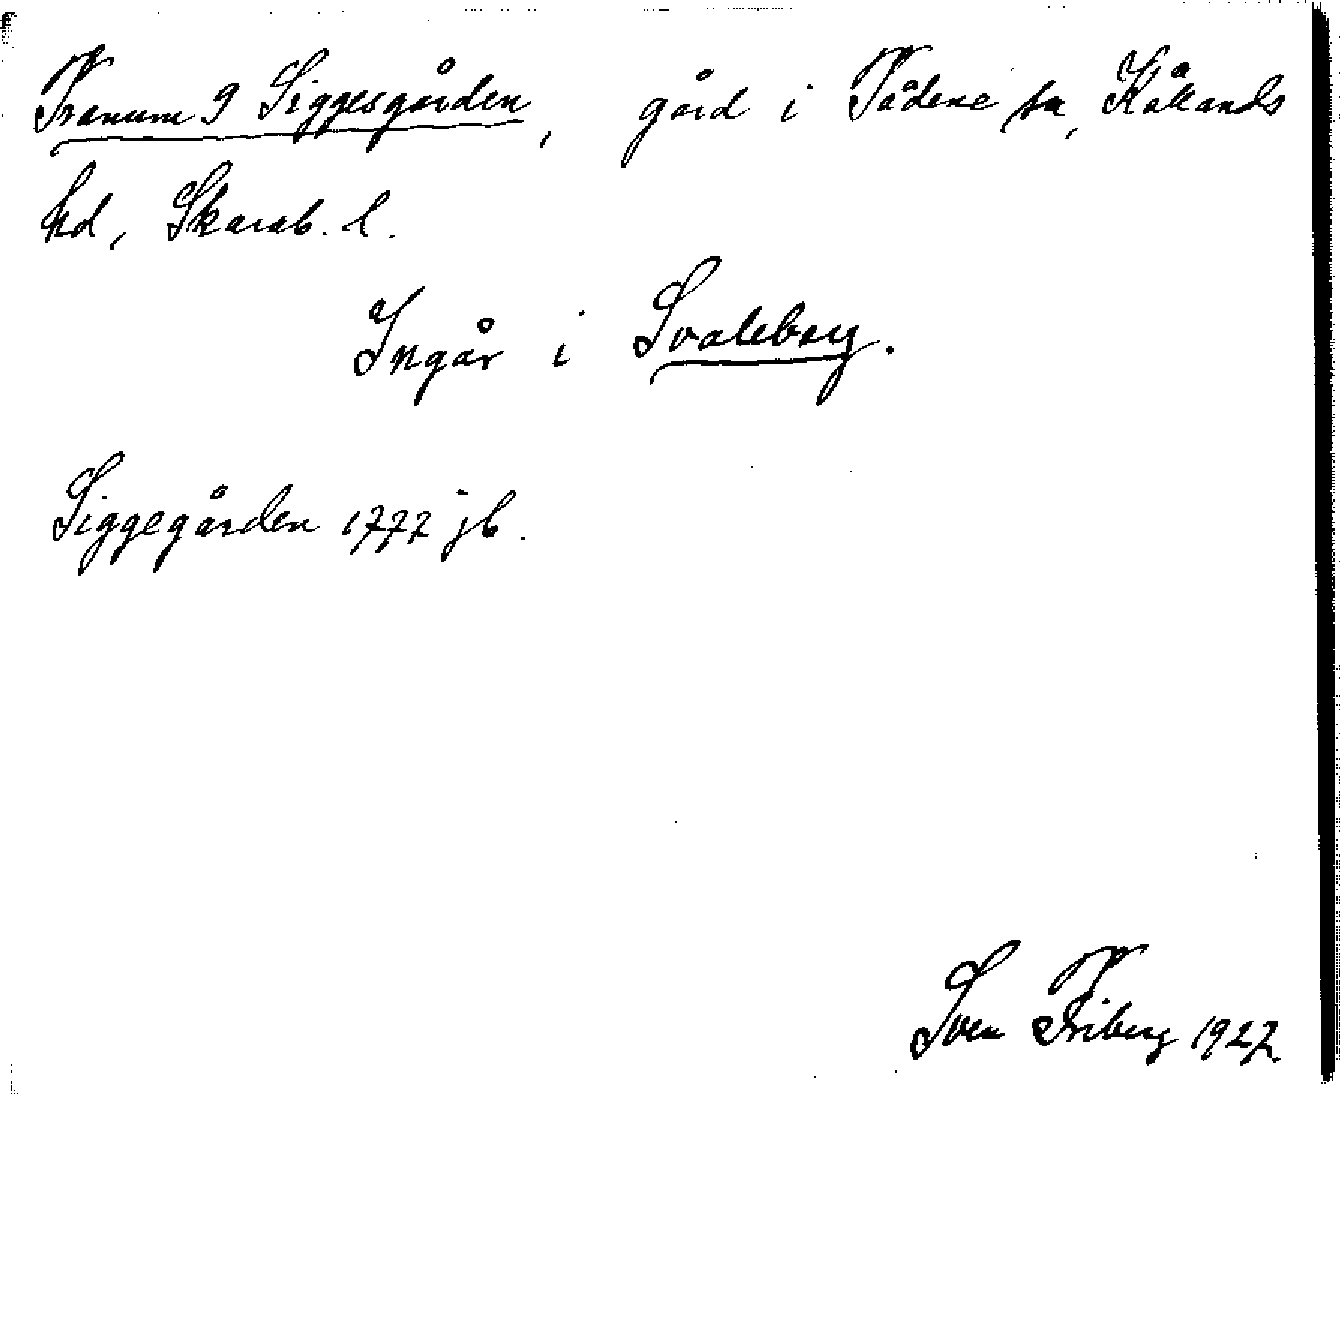 Tranum 9 Siggesgården, gård i Tådene sn, Kållands
hd, Skarab. l.
Ingår i Svaleberg.
Siggegården 1777 jb.
Sven Friberg 1927